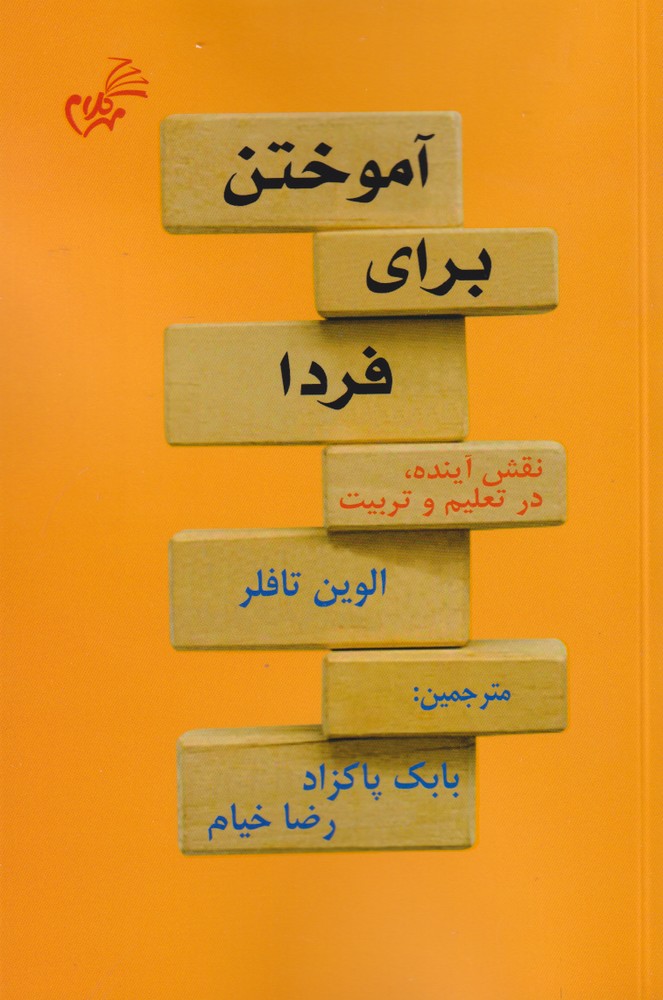 مهر کلام
آموختن
برای
فردا
نقش آینده،
در تعلیم و تربیت
الوین تافلر
مترجمین:
بابک پاکزاد
رضا خیام